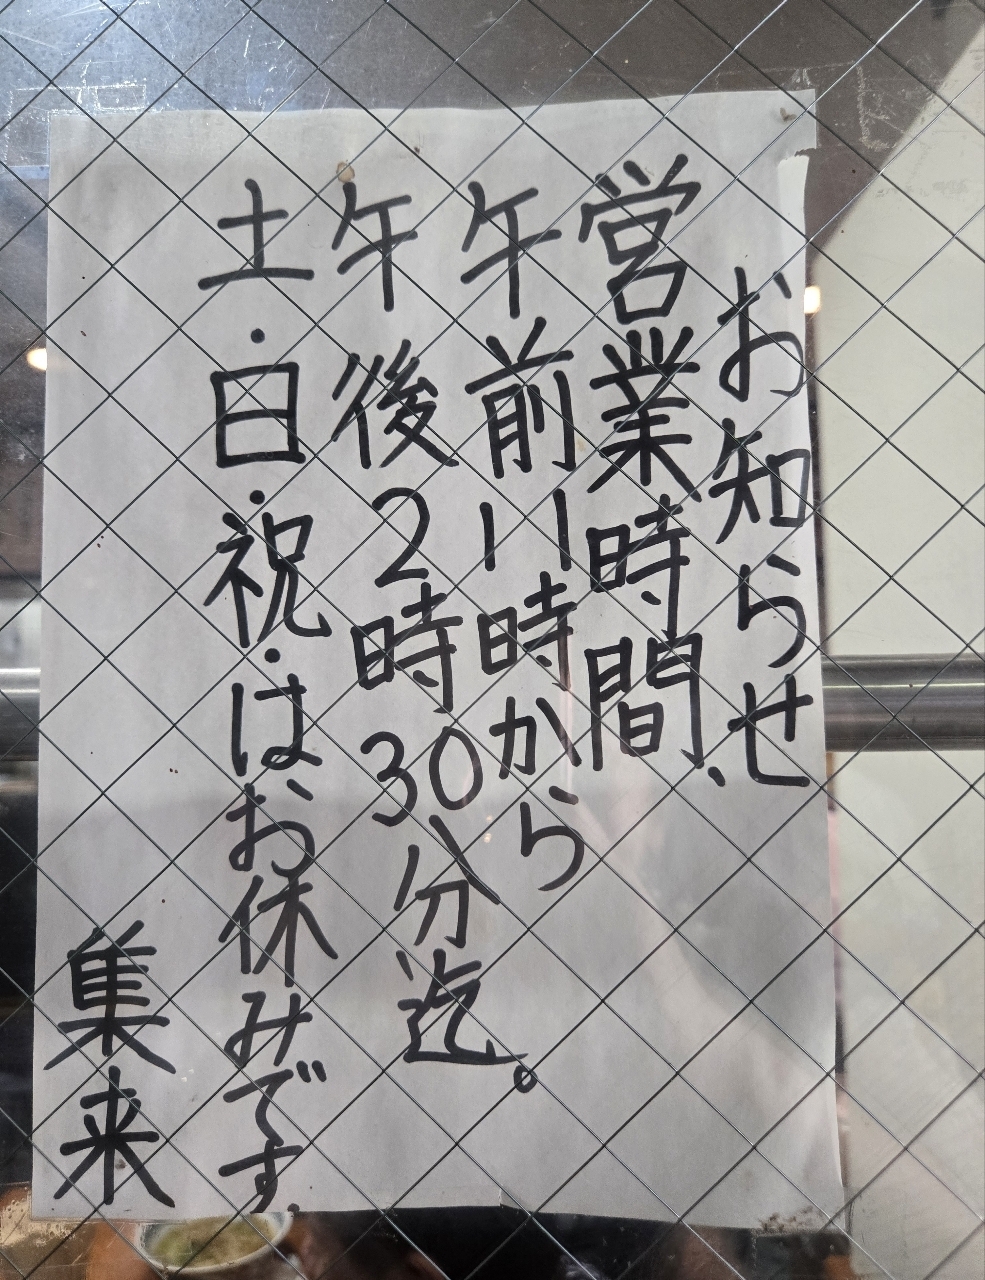 お知らせ
営業時間、
午前11時から
午後2時30分迄。
土・日・祝・は、お休みです。
集来